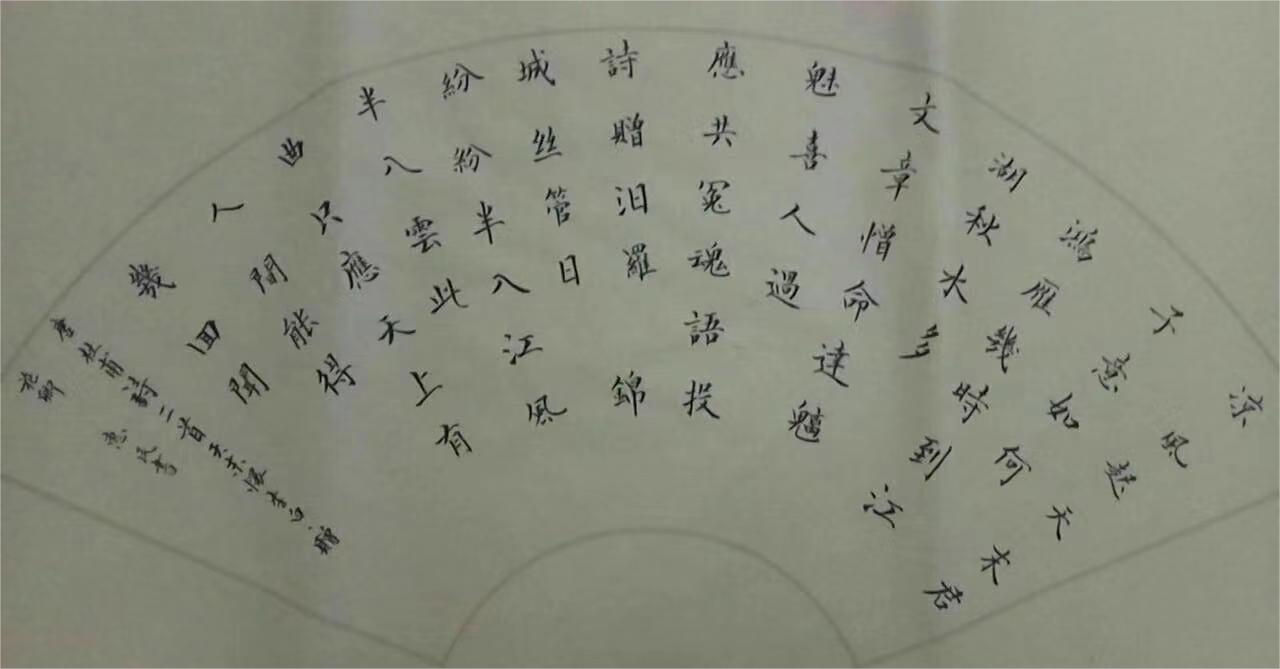 凉風起天末君
子意如何
鴻雁幾時到江
湖秋水多
文章憎命達魑
魅喜人過
應共冤魂語投
詩贈汨羅錦
城丝管日
紛紛半入江風
半入雲此
曲只應天上有
人間能得
幾回聞
唐杜甫詩二首天末懷李白、贈
花卿
惠民書